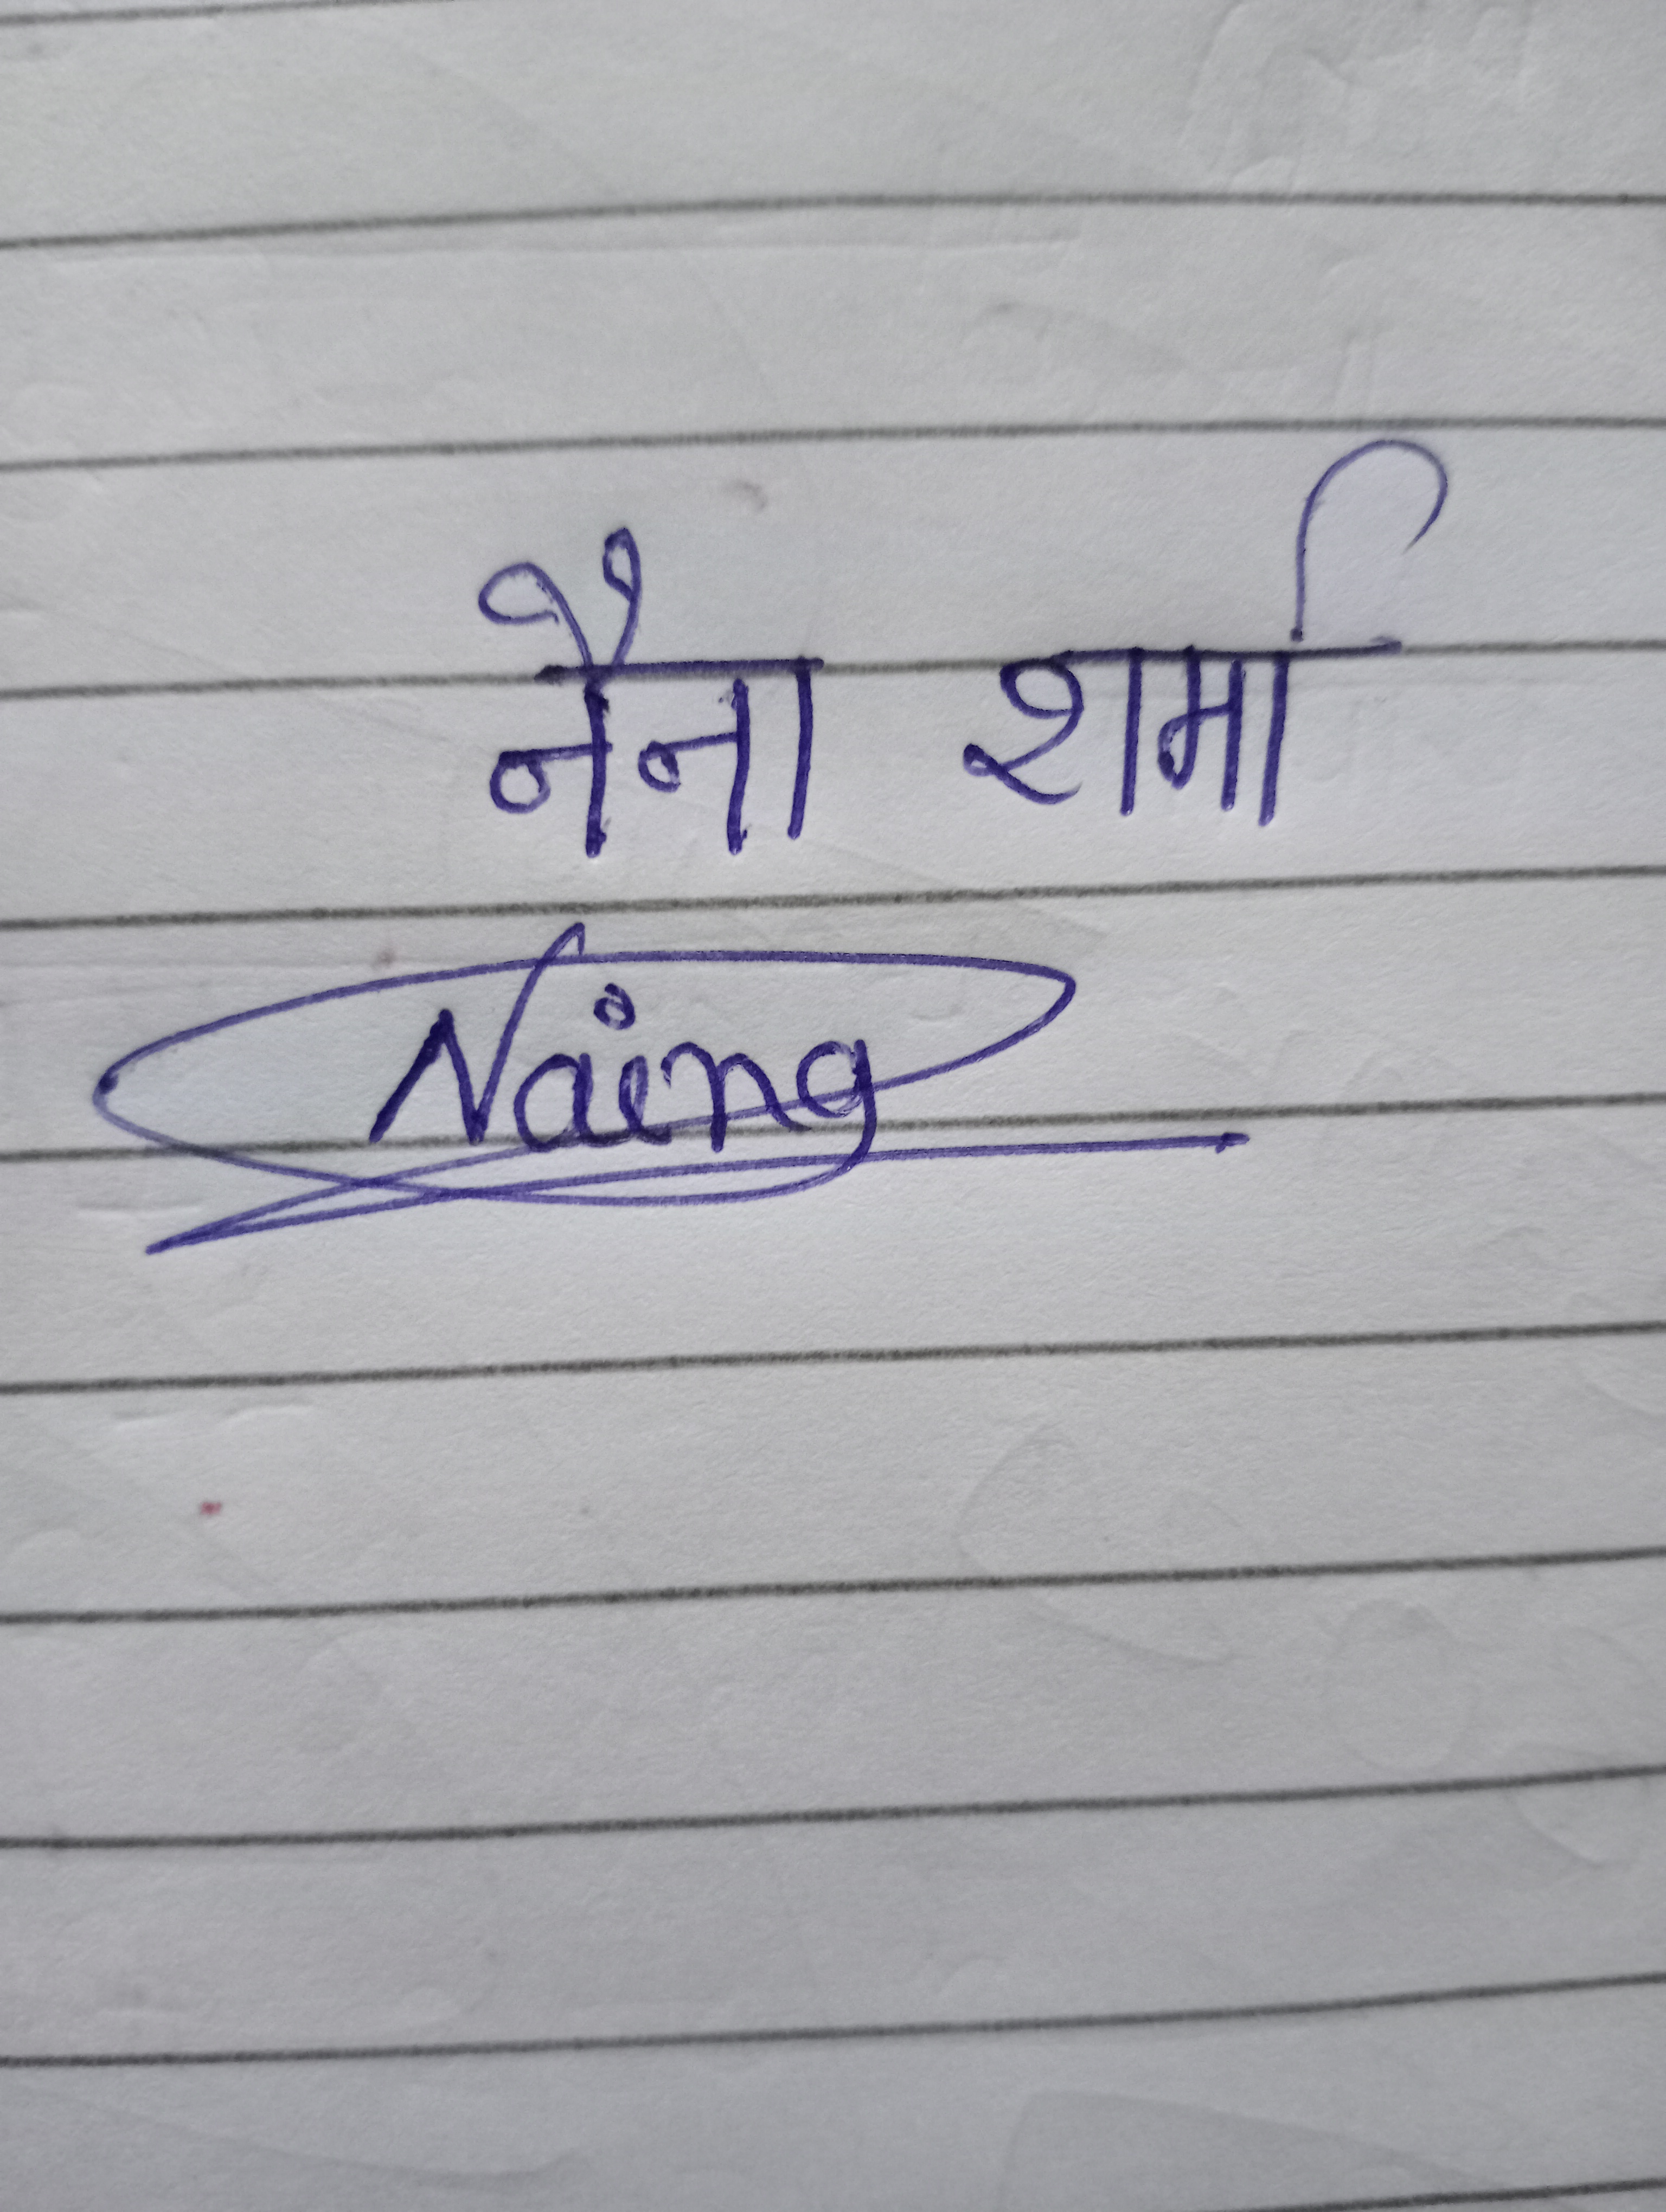 नैना शर्मा
Naina